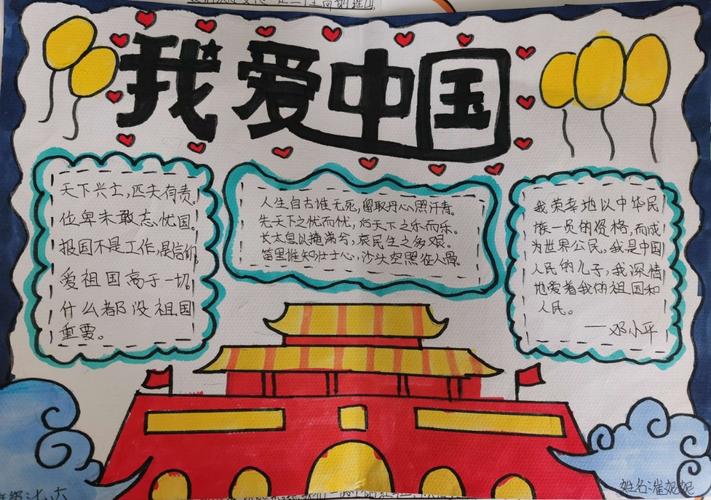 我爱中国
天下兴亡，匹夫有责。
位卑未敢忘忧国。
报国不是工作，是信仰
爱祖国高于一切
什么都没祖国
重要。
人生自古谁无死，留取丹心照汗青。
先天下之忧而忧，后天下之乐而乐。
长太息以掩涕兮，哀民生之多艰。
笛里谁知壮士心，沙头空照征人骨。
我荣幸地以中华民
族一员的资格，而成
为世界公民，我是中国
人民的儿子，我深情
地爱着我的祖国和
人民。
——邓小平
姓名：崔妮妮